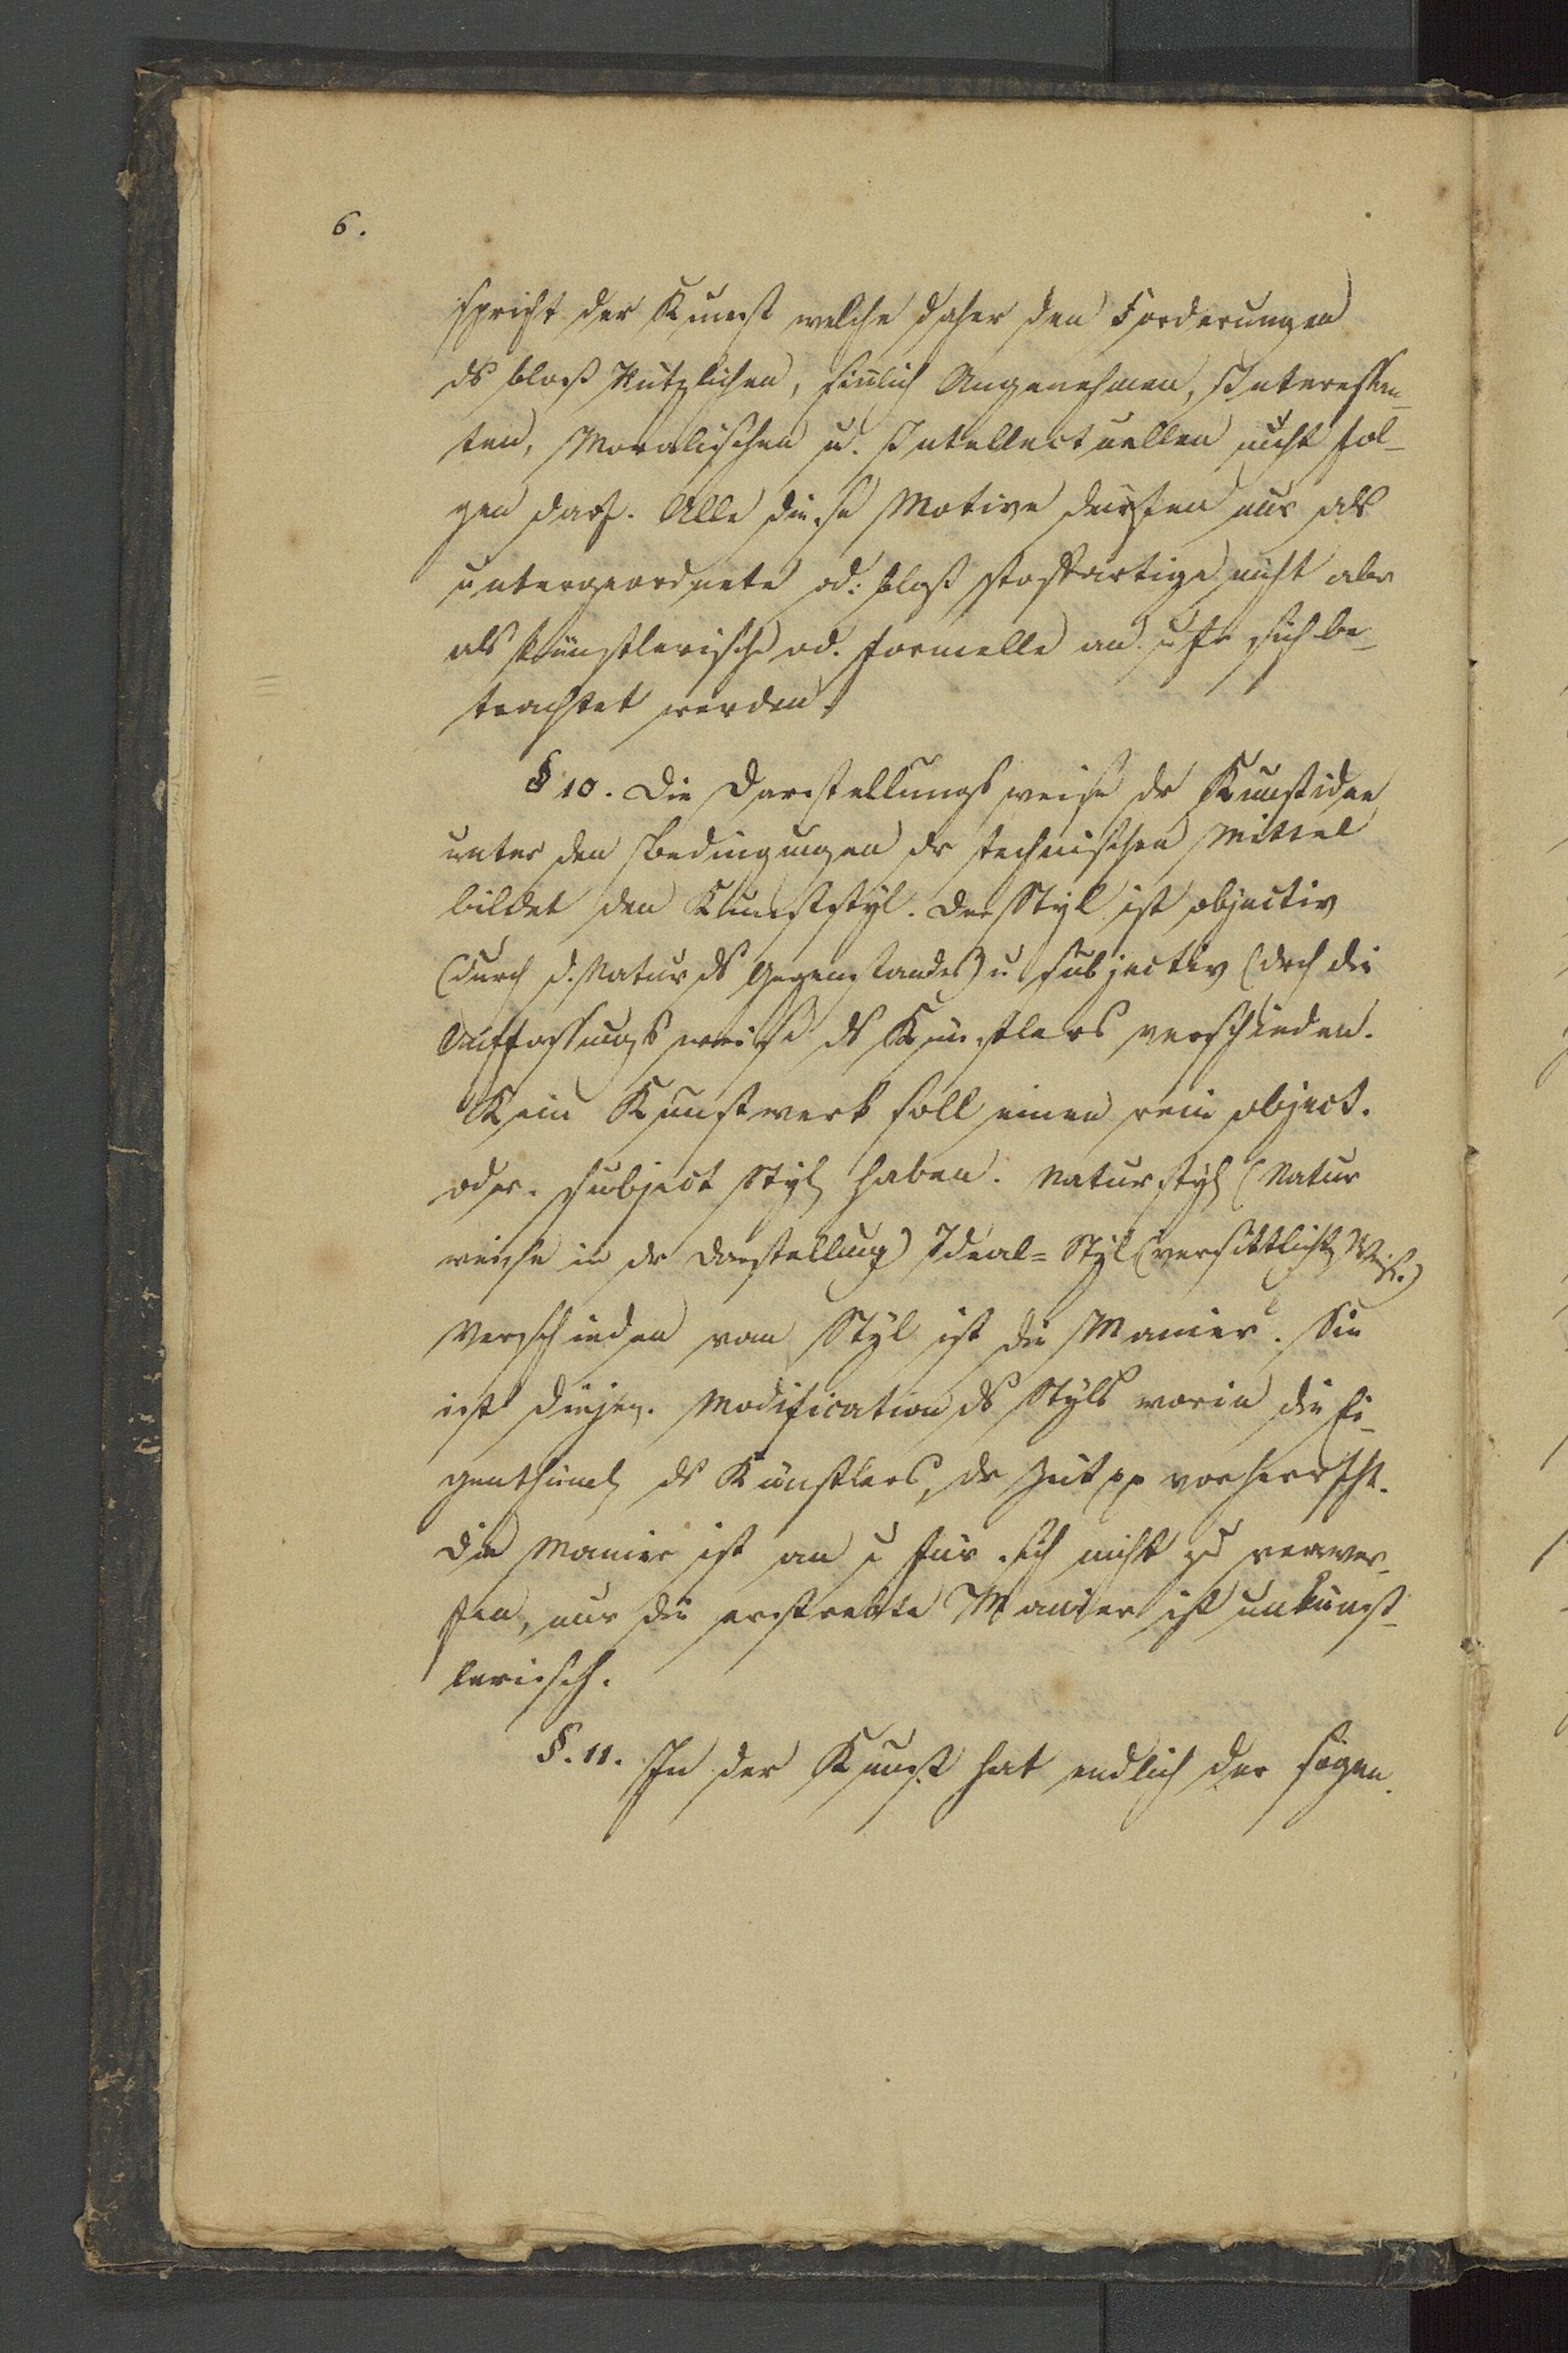 6.
spricht der Kunst welche daher den Forderungen
ds bloß Nützlichen, sinnlich Angenehmen, Interessan-
ten, Moralischen u. Intellectuellen nicht fol-
gen darf. Alle diese Motive dürfen nur als
untergeordnete od: bloß stoffartige nicht aber
als künstlerische od. formelle an u fr sich be-
trachtet werden.
§ 10. Die Darstellungsweise dr Kunstidee
unter den Bedingungen dr technischen Mittel
bildet den Kunststyl. Der Styl ist objectiv
(durch d. Natur ds Gegenstandes) u subjectiv (drch die
Auffassungsweise ds Künstlers verschieden.
Kein Kunstwerk soll einen rein object.
oder. subject Styl haben. Naturstyl (Natur
weise in dr Darstellung) Ideal-Styl (versittlicht Weise.)
Verschieden vom Styl ist die Manier. Sie
ist diejen. Modification ds Styls worin die Ei-
genthüml ds Künstlers, dr Zeit pp vorherrscht.
Die Manier ist an u für sich nicht zu verwer-
fen, nur die erstrebte Manier ist unkünst-
lerisch.
§. 11. In der Kunst hat endlich der sogen.